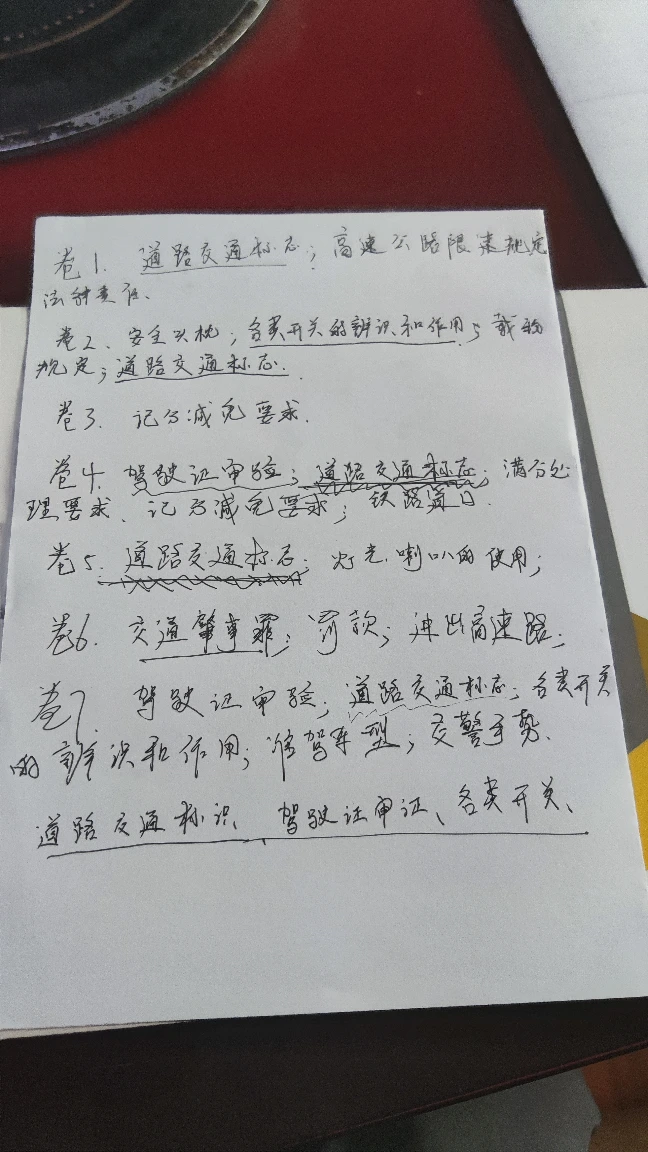 卷1. 道路交通标志；高速公路限速规定
法律责任、
卷2、安全头枕；各类开关的辨识和作用；载物
规定；道路交通标志.
卷3. 记分减免要求.
卷4. 驾驶证审验；道路交通标志；满分处
理要求、记分减免要求；铁路道口.
卷5. 道路交通标志；灯光、喇叭的使用；
卷6. 交通肇事罪；罚款；进出高速路；
卷7. 驾驶证审验；道路交通标志；各类开关
的辨识和作用；准驾车型；交警手势、
道路交通标识、驾驶证审证、各类开关、